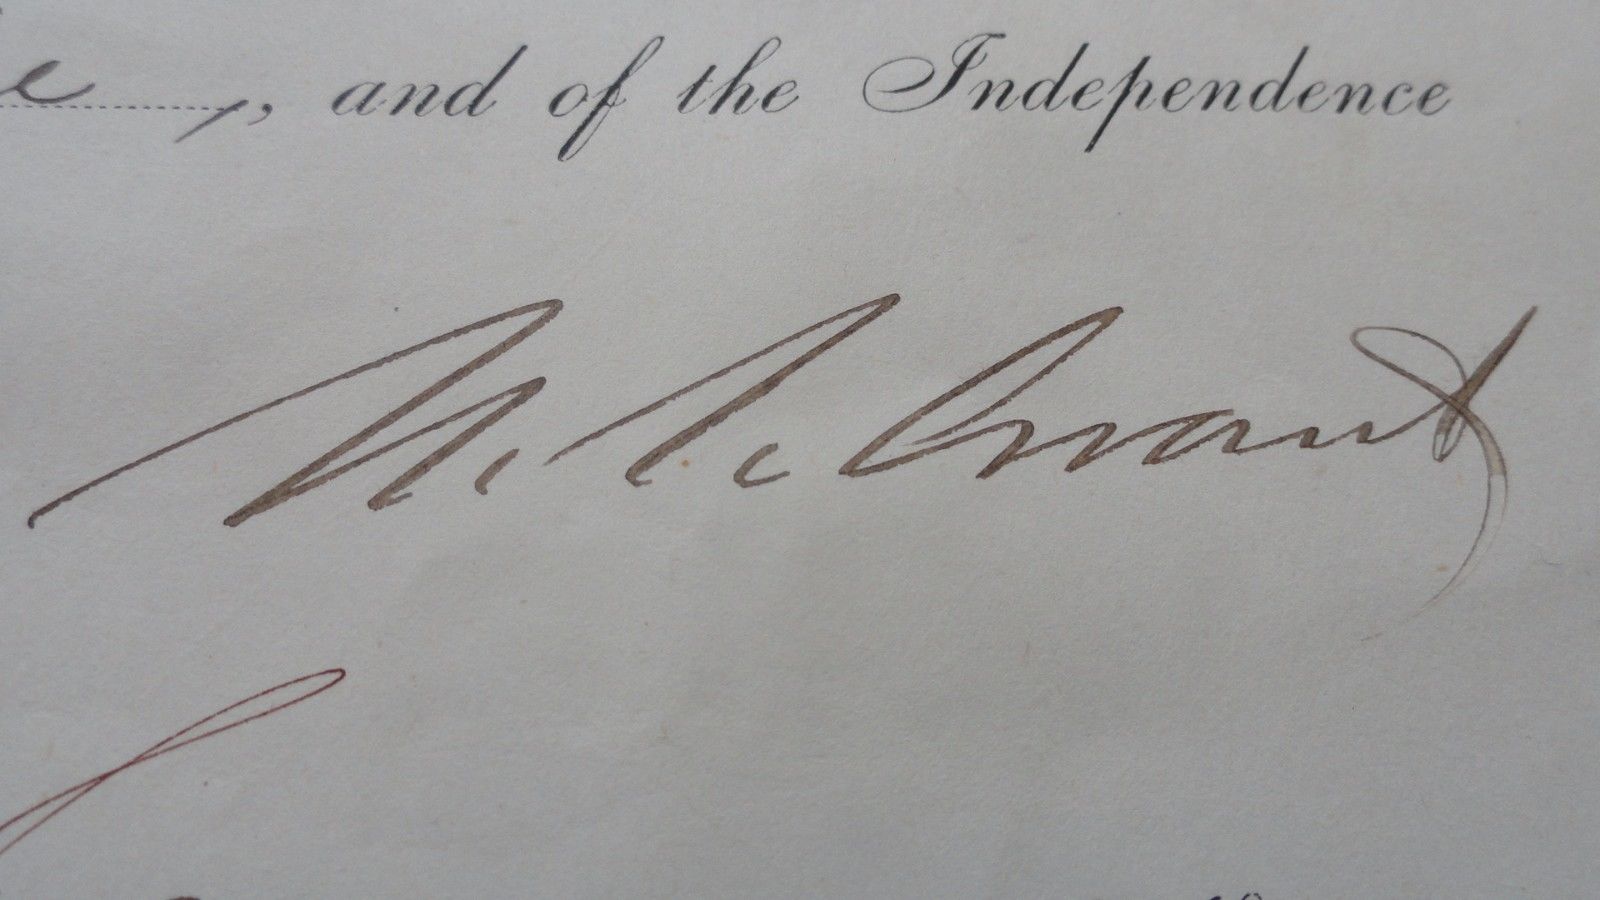 e, and of the Independence
U. S. Grant